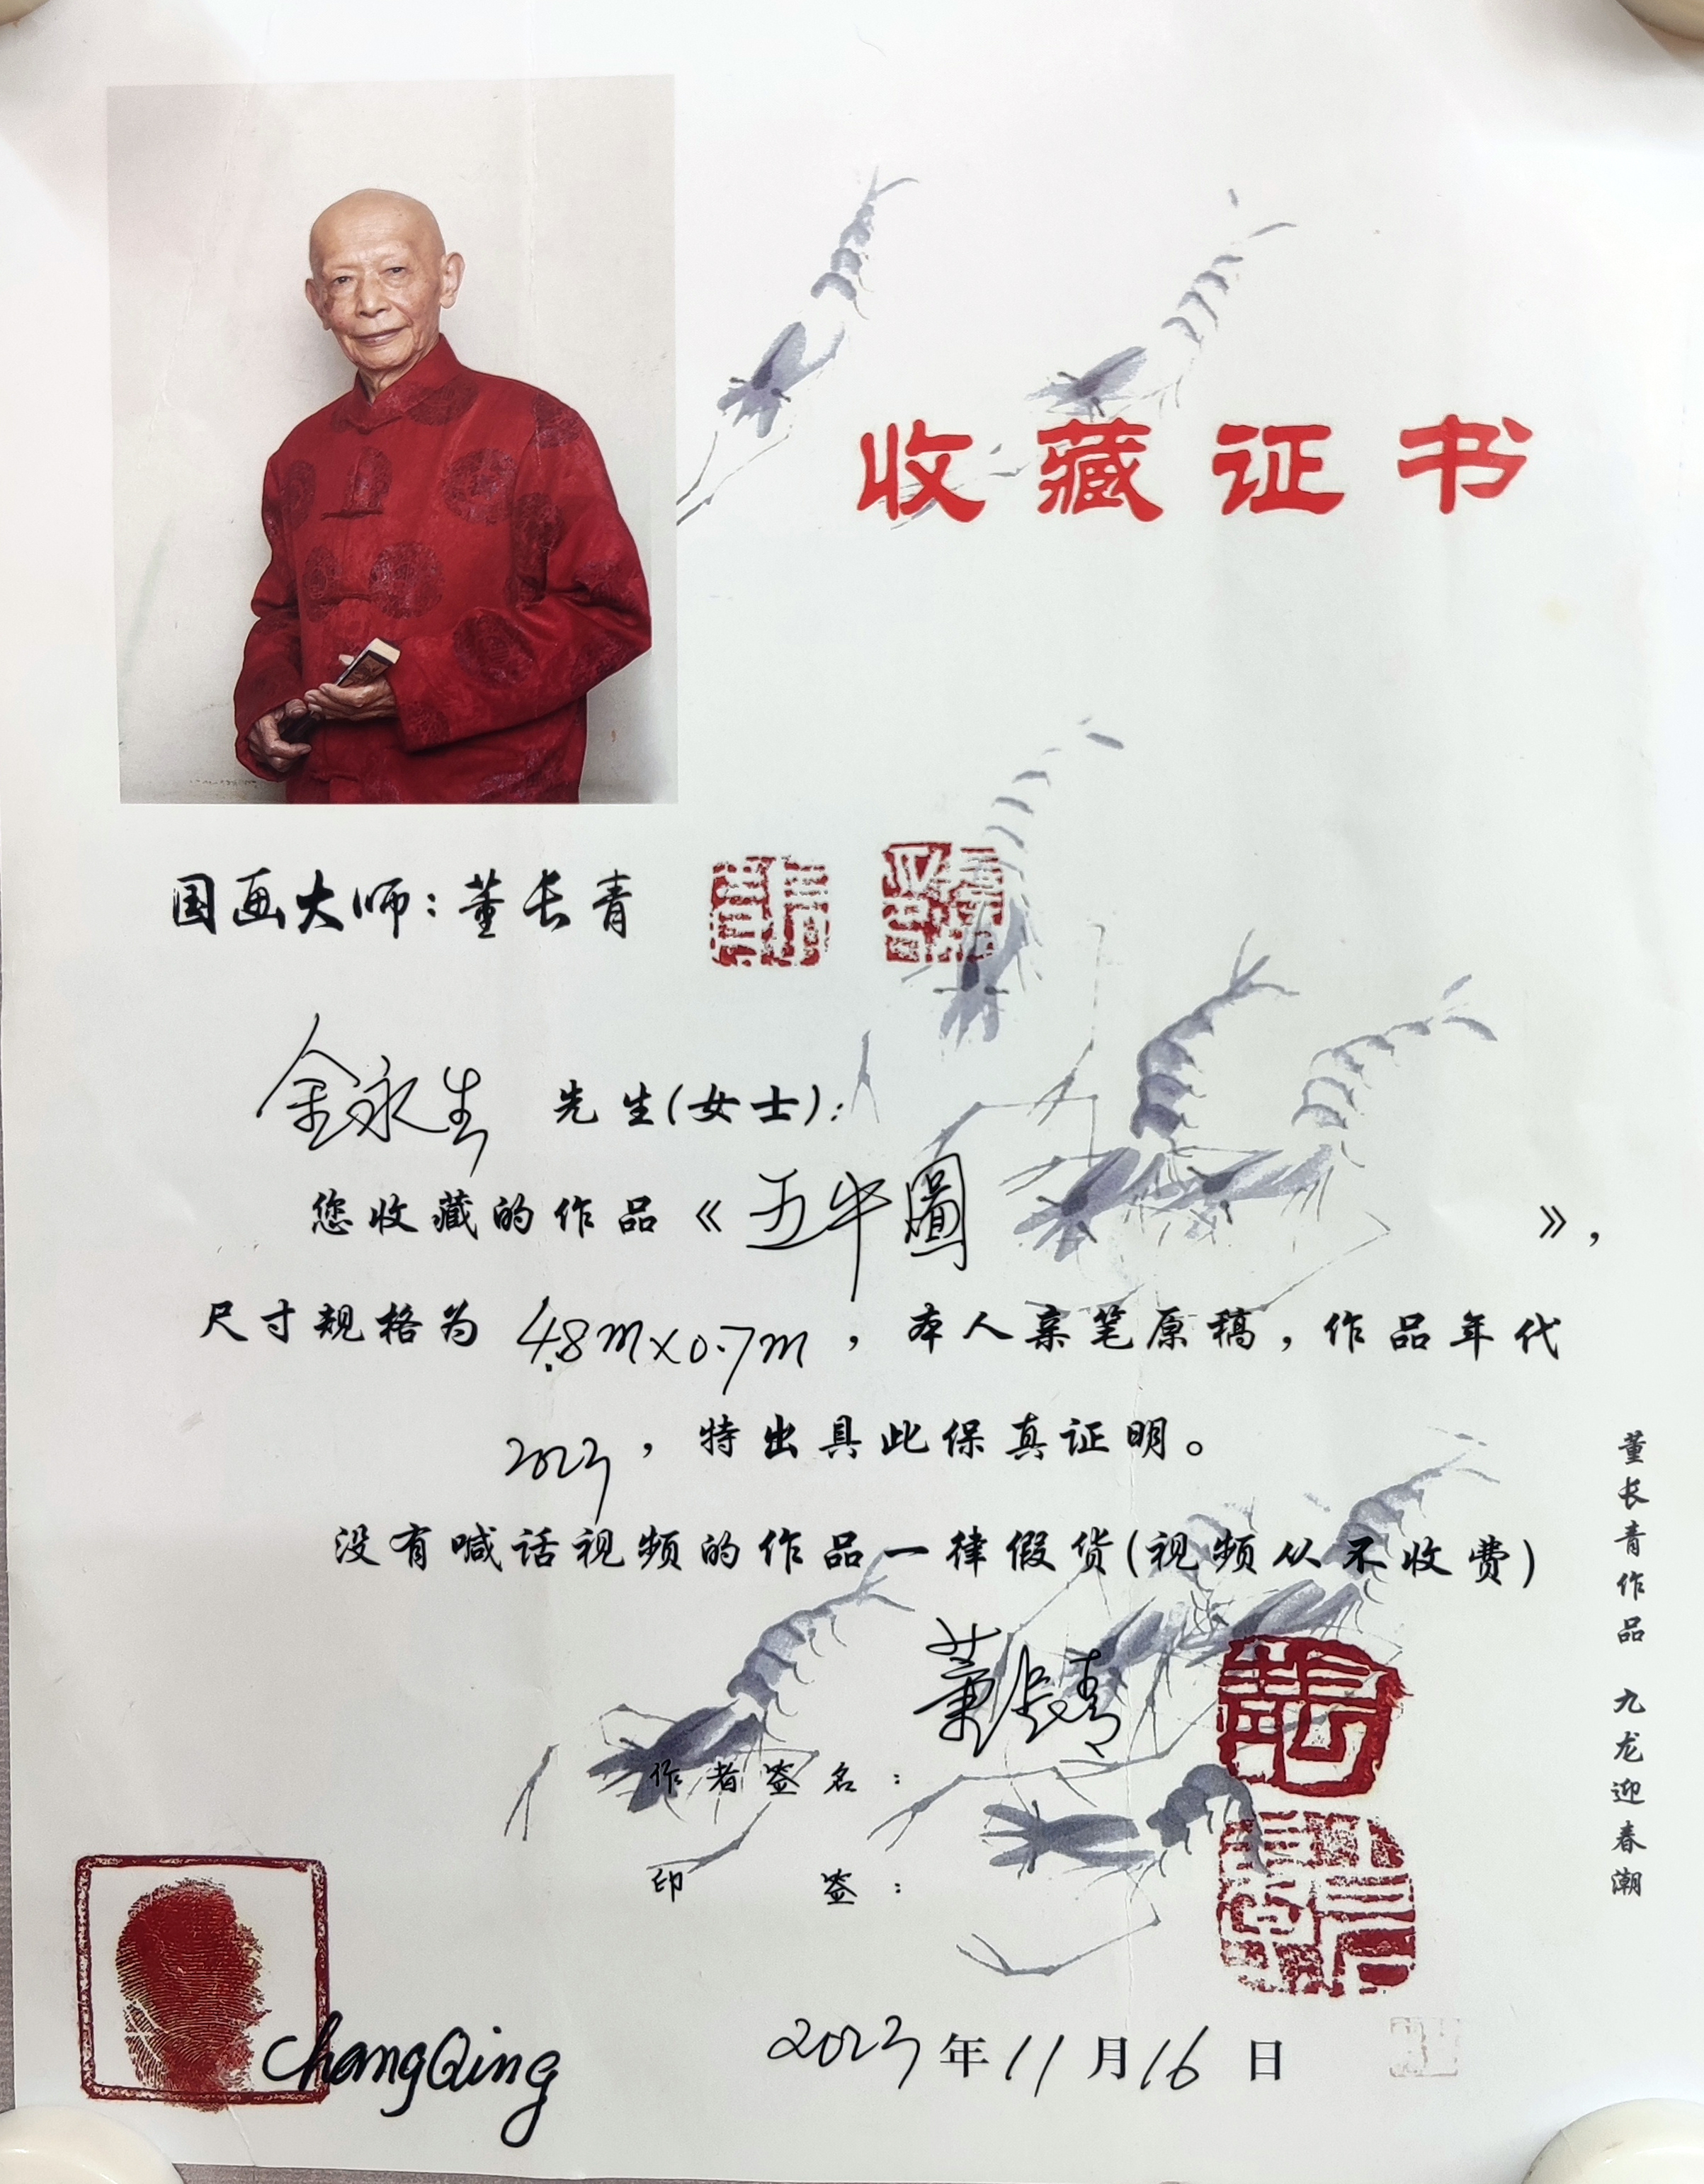 收藏证书
国画大师：董长青
金永生 先生(女士)：
您收藏的作品《五牛圖》，
尺寸规格为 4.8m×0.7m，本人亲笔原稿，作品年代
2023，特出具此保真证明。
没有喊话视频的作品一律假货(视频从不收费)
董长青
作者签名：
印 签：
ChangQing
2023年11月16日
董长青作品 九龙迎春潮